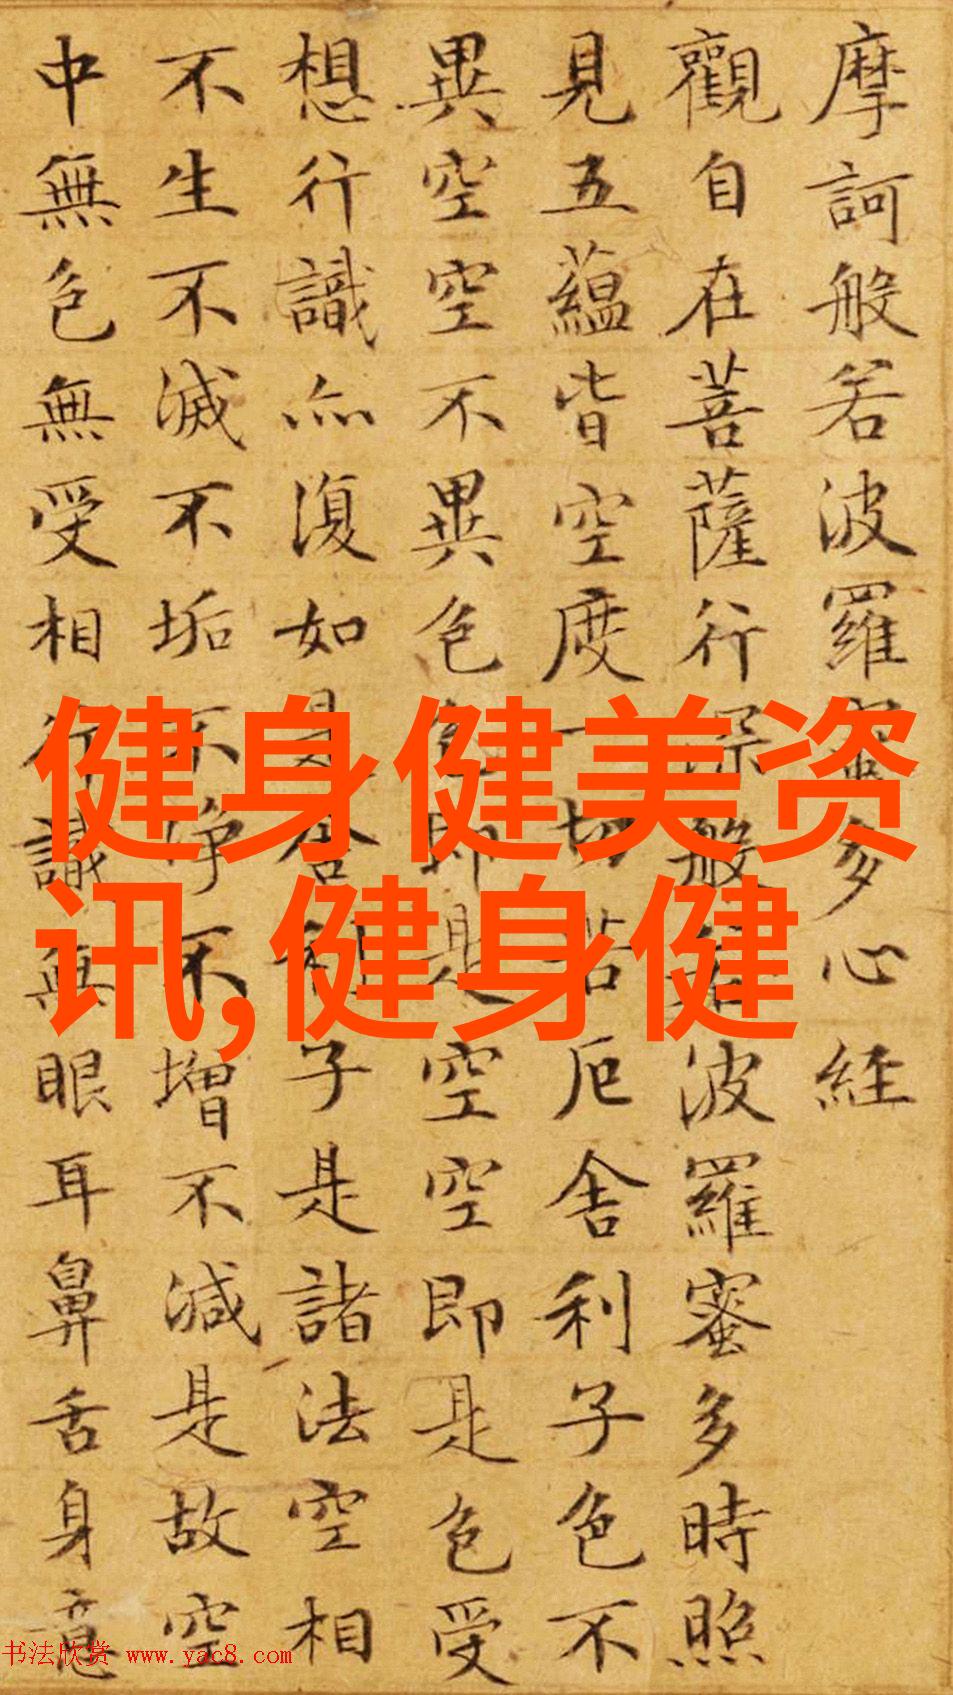 摩訶般若波羅蜜多心経
觀自在菩薩行深般若波羅蜜多時照
見五蘊皆空度一切苦厄舍利子色不
異空空不異色色即是空空即是色受
想行識亦復如是舍利子是諸法空相
不生不滅不垢不淨不增不減是故空
中無色無受相行識無眼耳鼻舌身意
健身健美资
讯,健身健
书法欣赏 www.yac8.com